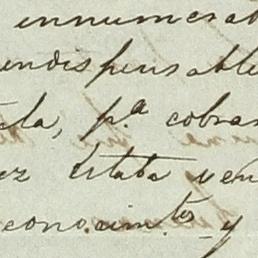 innumerab
endispensable
la, p.ª cobra
ez estaba ven
conocim.tos y